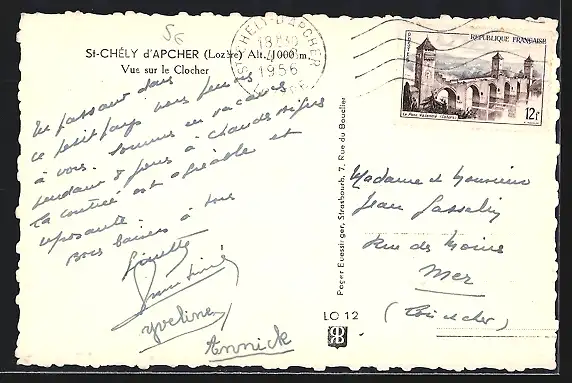 56
St-CHÉLY d'APCHER (Lozère) Alt. 1000 m.
Vue sur le Clocher
ST-CHÉLY-D'APCHER
1956
POSTES
REPUBLIQUE FRANÇAISE
Le Pont Valentré (Cahors)
12f
En passant dans
ce petit pays nous pensons
à vous. Sommes en vacances
pendant 8 jours à Chaudes Aigues
la contrée est agréable et
reposante.
Bons baisers à tous
Ginette
Yveline
Annick
Pager Euessinger, Strasbourg, 7, Rue du Bouclier
LO 12
Madame et Monsieur
Jean Gasselin
Rue des Moines
Mer
(Loir et Cher)